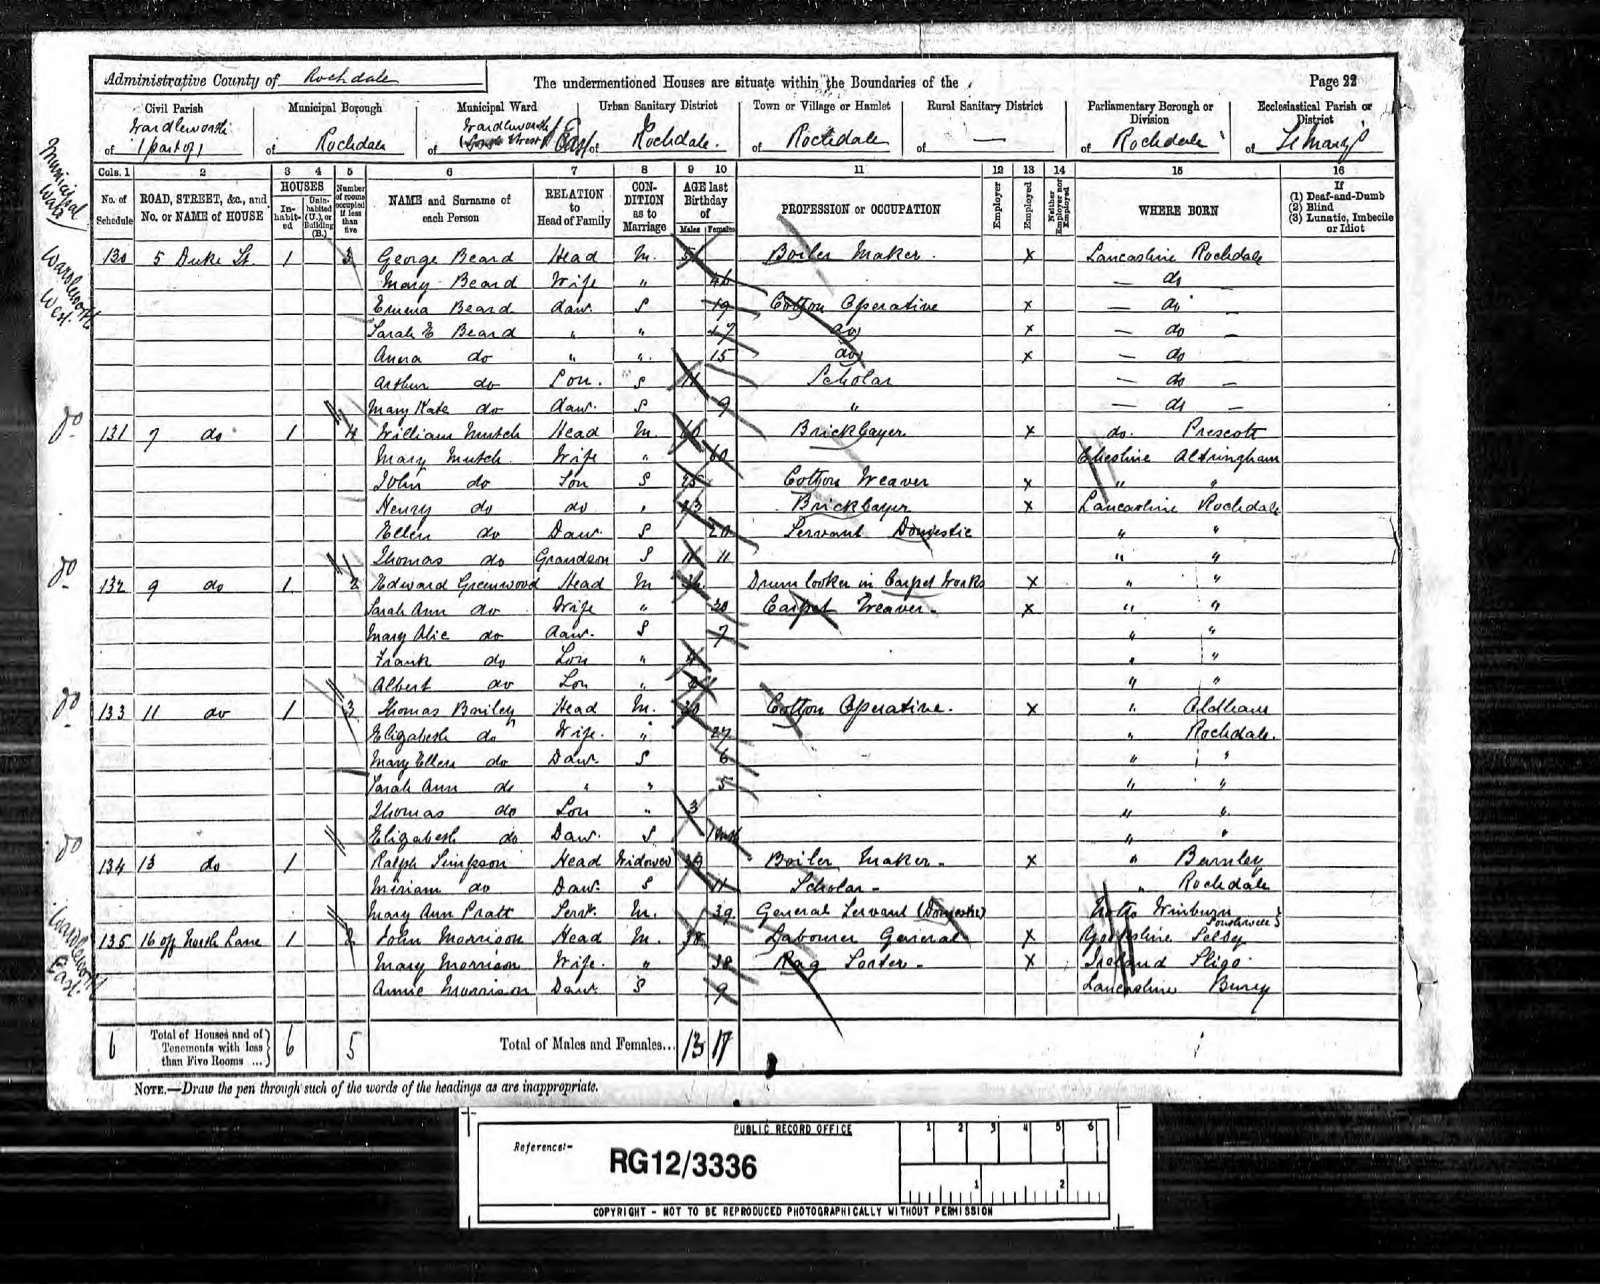 Administrative County of Rochdale The undermentioned Houses are situate within the Boundaries of the Page 22
Civil Parish Municipal Borough Municipal Ward Urban Sanitary District Town or Village or Hamlet Rural Sanitary District Parliamentary Borough or Division Ecclesiastical Parish or District
of Wardleworth (part of) of Rochdale of Wardleworth East of Rochdale. of Rochdale of — of Rochdale of St Mary's
Cols. 1 2 3 4 5 6 7 8 9 10 11 12 13 14 15 16
No. of Schedule ROAD, STREET, &c., and No. or NAME of HOUSE HOUSES Inhabited Uninhabited (U.), or Building (B.) Number of rooms occupied if less than five NAME and Surname of each Person RELATION to Head of Family CONDITION as to Marriage AGE last Birthday of Males Females PROFESSION or OCCUPATION Employer Employed Neither Employer nor Employed WHERE BORN If (1) Deaf-and-Dumb (2) Blind (3) Lunatic, Imbecile or Idiot
Municipal Ward
Wardleworth West.
130 5 Duke St. 1 3 George Beard Head M. Boiler Maker. x Lancashire Rochdale
Mary Beard Wife " 46 — do
Emma Beard daur. S 19 Cotton Operative x — do —
Sarah E Beard " " 17 do x — do —
Anna do " " 15 do x — do
Arthur do Son. S 11 Scholar — do —
Mary Kate do daur. S 9 " — do —
do 131 7 do 1 4 William Mutch Head M. Bricklayer x do. Prescott
Mary Mutch Wife " 60 Cheshire Altringham
John do Son S 25 Cotton Weaver x " "
Henry do do " 23 Bricklayer x Lancashire Rochdale
Ellen do Daur. S 20 Servant Domestic " "
Thomas do Grandson S 11 11 " "
do 132 9 do 1 2 Edward Greenwood Head M Drum looker in Carpet Works x " "
Sarah Ann do Wife " 30 Carpet Weaver x " "
Mary Alic do daur. S 7 " "
Frank do Son " 4 " "
Albert do Son " " "
do 133 11 do 1 3 Thomas Bailey Head M. Cotton Operative. x " Oldham
Elizabeth do Wife. " 27 " Rochdale.
Mary Ellen do Daur S 6 " "
Sarah Ann do " " 5 " "
Thomas do Son " 3 " "
Elizabeth do Daur. S " "
do 134 13 do 1 Ralph Simpson Head Widower 39 Boiler Maker x " Burnley
Miriam do Daur. S 11 Scholar " Rochdale
Mary Ann Pratt Servt. M. 39 General Servant (Domestic) Notts Winburn
Wardleworth East.
135 16 off North Lane 1 2 John Morrison Head M. 38 Labourer General x Yorkshire Selby
Mary Morrison Wife. " 38 Rag Sorter x Ireland Sligo
Annie Morrison Daur S 9 Lancashire Bury
6 Total of Houses and of Tenements with less than Five Rooms ... 6 5 Total of Males and Females... 13 17
NOTE.—Draw the pen through such of the words of the headings as are inappropriate.
PUBLIC RECORD OFFICE 1 2 3 4 5 6
Reference:-
RG12/3336
1 2
COPYRIGHT - NOT TO BE REPRODUCED PHOTOGRAPHICALLY WITHOUT PERMISSION